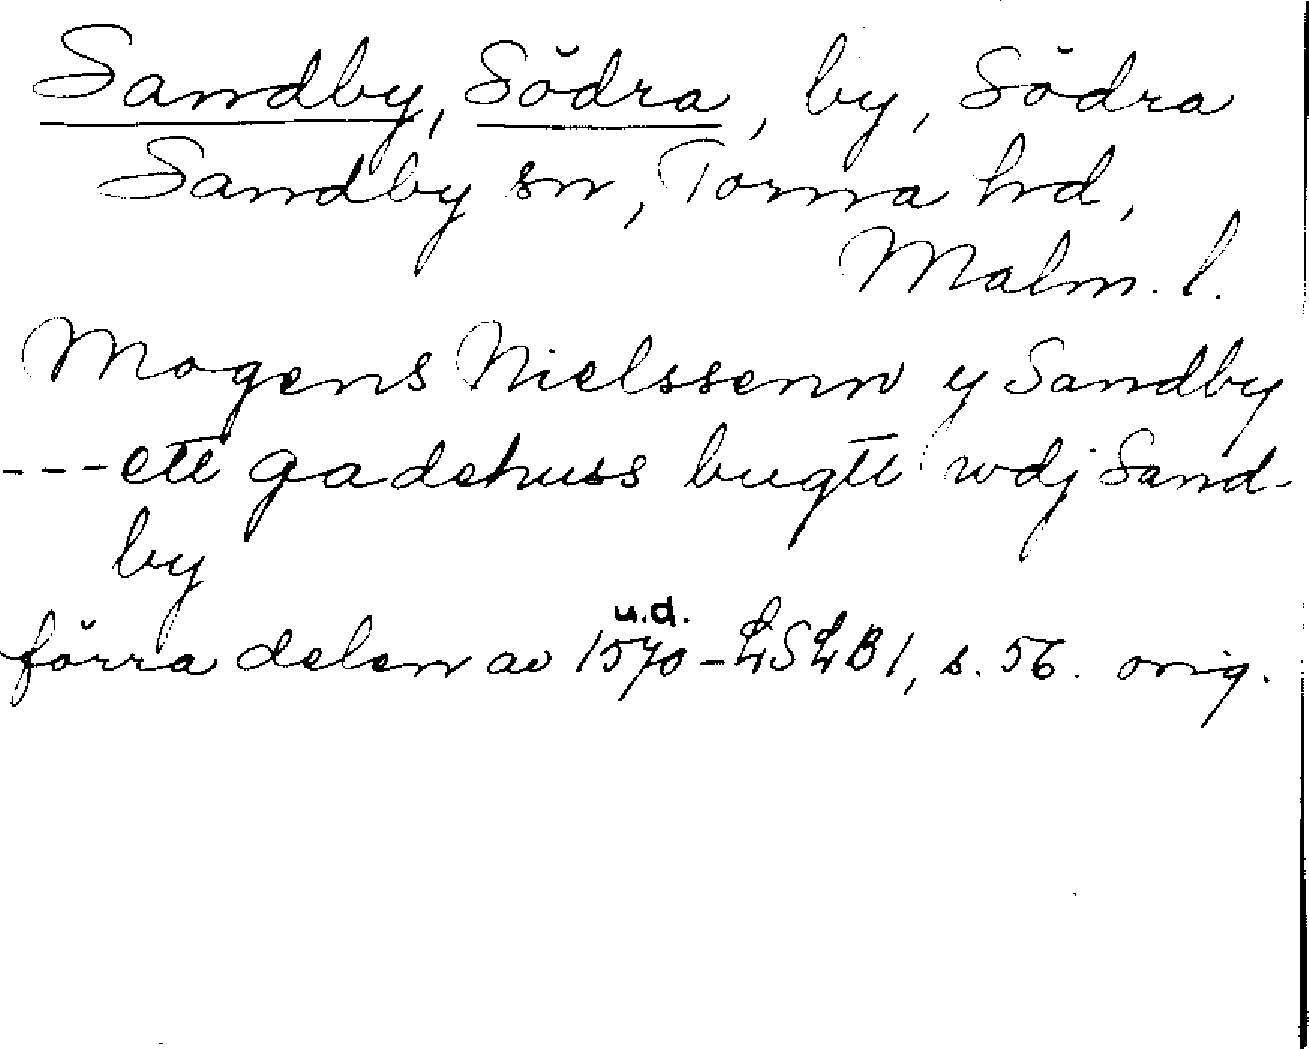 Sandby, Södra, by, Södra
Sandby sn, Torna hd,
Malm. l.
Mogens Nielssenn y Sandby
---ett gadehuss bugtt wdj Sand-
by
u.d.
förra delen av 1570 - LSLB 1, s. 56. orig.